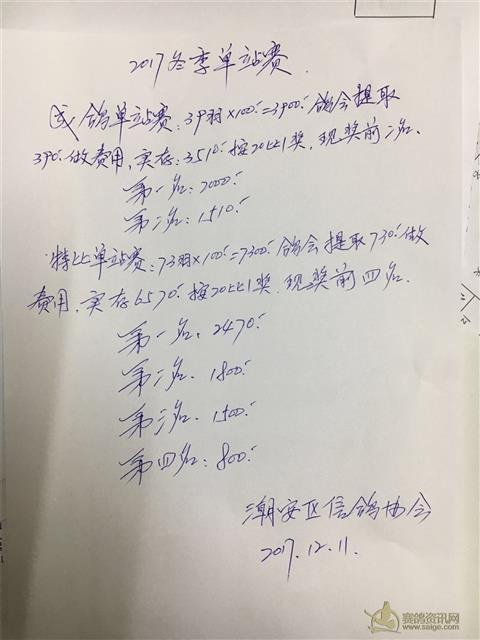 2017冬季单站赛.
成鸽单站赛:39羽×100元=3900元鸽会提取
390元做费用,实存:3510元按20比1奖,现奖前二名.
第一名:2000元
第二名:1510元
特比单站赛:73羽×100元=7300元鸽会提取730元做
费用,实存6570元按20比1奖.现奖前四名.
第一名:2470元
第二名、1800元
第三名、1500元
第四名:800元
潮安区信鸽协会
2017.12.11.
赛鸽资讯网
www.saige.com